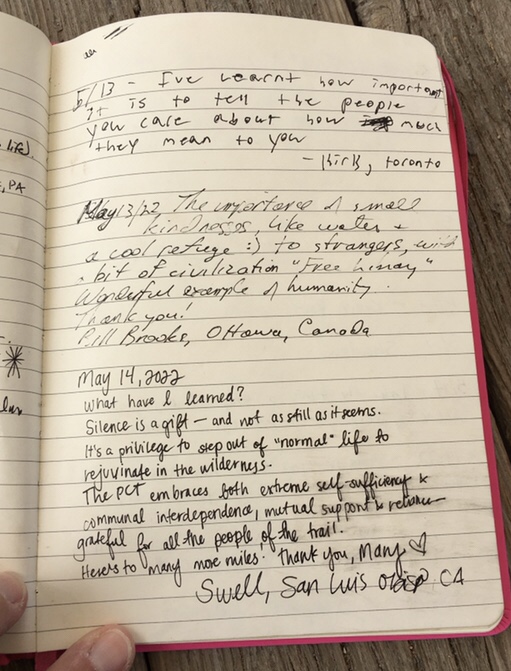 life).
, PA
5/13 - I've learnt how important
it is to tell the people
you care about how much
they mean to you
- Kirk, toronto
May 13/22, The importance of small
kindnesses, like water +
a cool refuge :) to strangers, with
a bit of civilization "Free Library"
Wonderful example of humanity.
Thank you!
Bill Brooks, Ottawa, Canada
May 14, 2022
What have I learned?
Silence is a gift — and not as still as it seems.
It's a privilege to step out of "normal" life to
rejuvinate in the wilderness.
The PCT embraces both extreme self-sufficiency &
communal interdependence, mutual support & reliance
grateful for all the people of the trail.
Here's to many more miles! Thank you, Mary ♡
Swell, San Luis Obispo CA